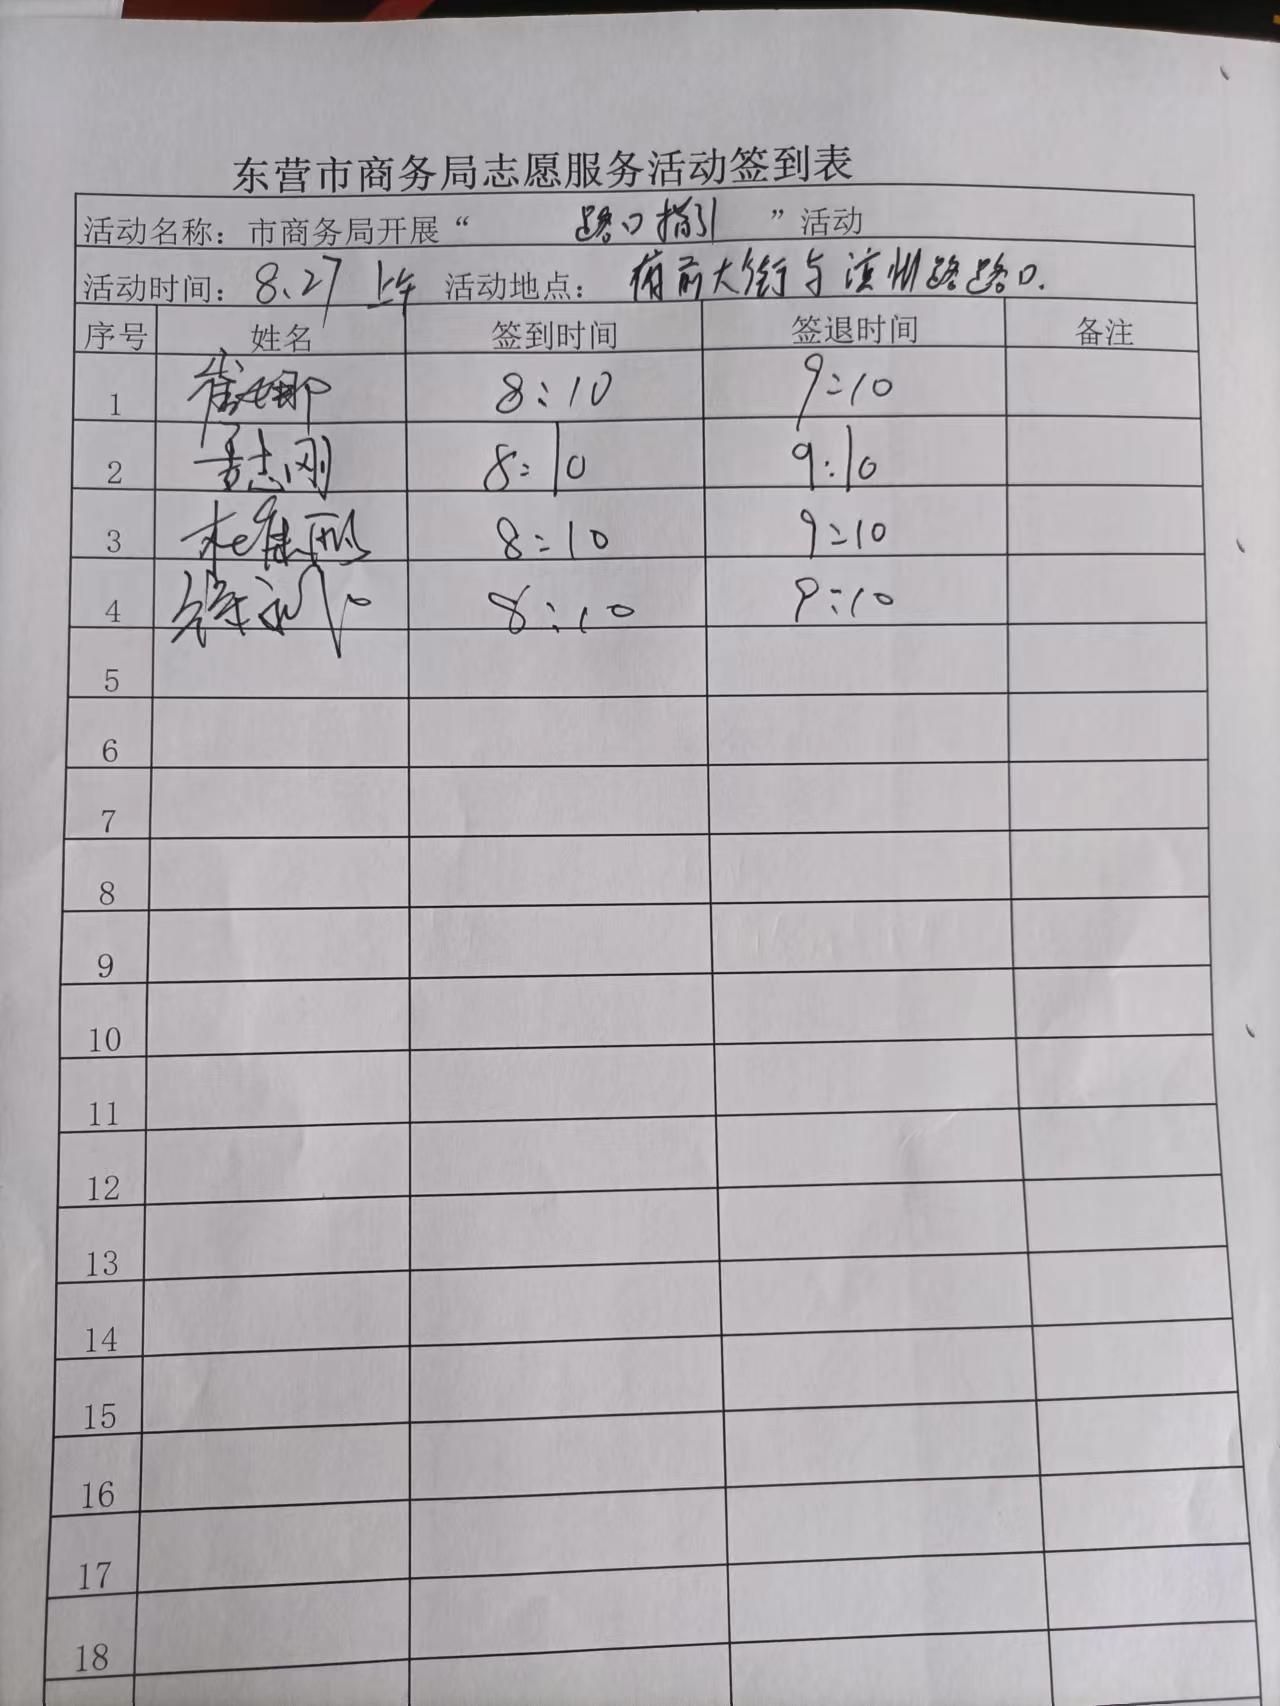 东营市商务局志愿服务活动签到表
活动名称：市商务局开展“ 路口指引 ”活动
活动时间：8.27 上午 活动地点：府前大街与滨州路路口.
序号 姓名 签到时间 签退时间 备注
1 崔娜 8:10 9:10
2 志刚 8:10 9:10
3 8:10 9:10
4 8:10 9:10
5
6
7
8
9
10
11
12
13
14
15
16
17
18